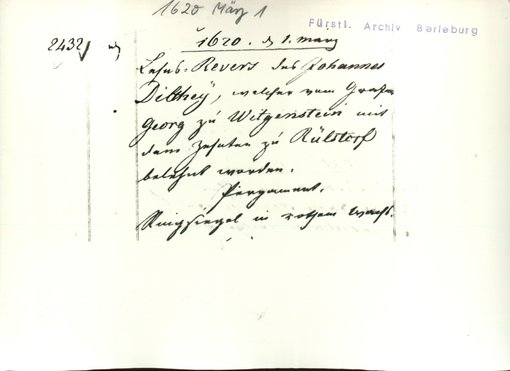 1620 März 1
Fürstl. Archiv Berleburg
2432
1620. d. 1. März
Lehns-Revers des Johannes
Dilthey, welcher vom Grafen
Georg zu Witgenstein mit
dem Zehnten zu Rülsdorf
belehnt worden.
Pergament.
Ringsiegel in rothem Wachs.